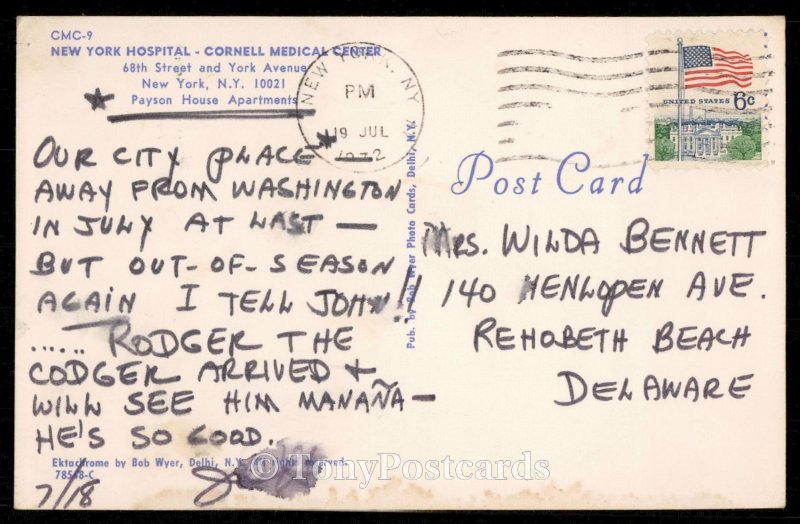 CMC-9
NEW YORK HOSPITAL - CORNELL MEDICAL CENTER
68th Street and York Avenue
New York, N.Y. 10021
* Payson House Apartments
OUR CITY PLACE*—
AWAY FROM WASHINGTON
IN JULY AT LAST —
BUT OUT-OF-SEASON
AGAIN I TELL JOHN!!
..... RODGER THE
CODGER ARRIVED &
WILL SEE HIM MANAÑA—
HE'S SO GOOD.
Ektachrome by Bob Wyer, Delhi, N.Y.
78548-C
7/18
Pub. by Bob Wyer Photo Cards, Delhi, N.Y.
NEW YORK, NY
PM
19 JUL
1972
UNITED STATES 6c
Post Card
MRS. WILDA BENNETT
140 HENLOPEN AVE.
REHOBETH BEACH
DELAWARE
©TonyPostcards